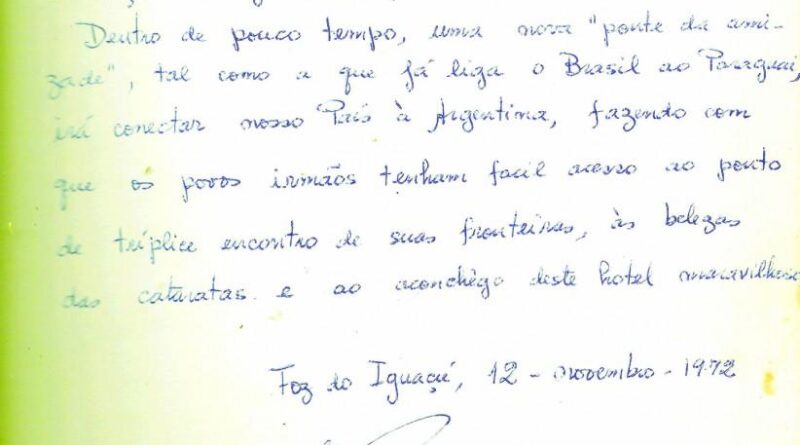 Dentro de pouco tempo, uma nova "ponte da ami-
zade", tal como a que já liga o Brasil ao Paraguai,
irá conectar nosso País à Argentina, fazendo com
que os povos irmãos tenham facil acesso ao ponto
de tríplice encontro de suas fronteiras, às belezas
das cataratas e ao aconchêgo deste hotel maravilhoso
Foz do Iguaçú, 12 - novembro - 1972